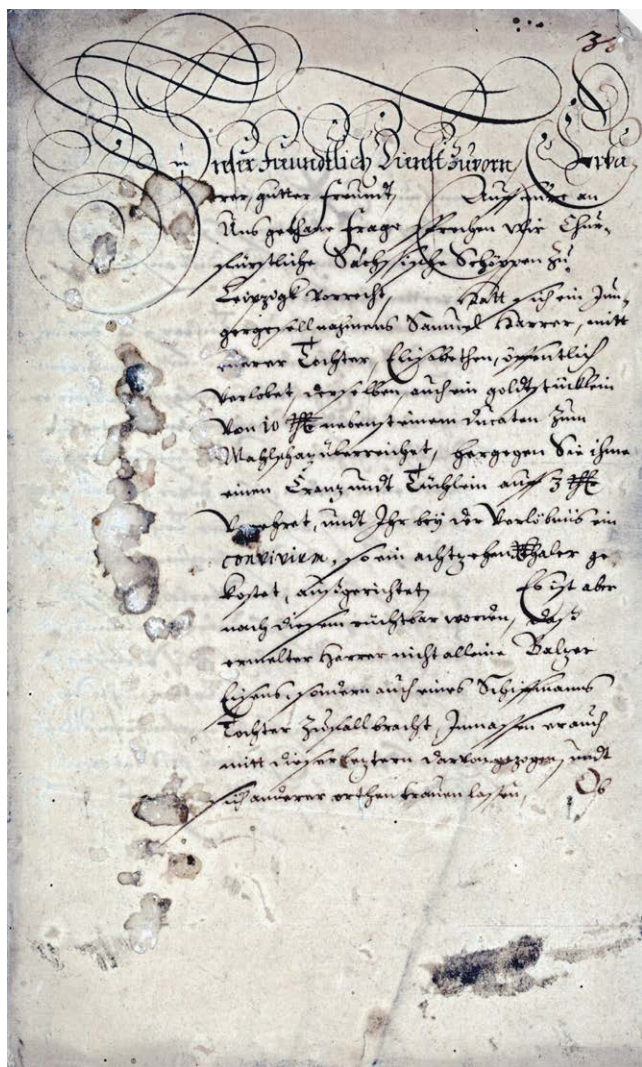 38
Unser freundtlich Dienst zuvorn, Erba
rer, gutter freundt, Auff eure an
Uns gethane frage sprechen Wir Chur-
fürstliche Sächsische Schöppen zu
Leipzigk vor recht, Hatt sich ein Jun-
gergesell nahmens Samuel Harrer, mitt
eurer Tochter, Elisabethen, öffentlich
verlobet, derselben auch ein goldtstücklein
von 10 nebenst einem ducaten zum
Mahlschatz überreichet, hergegen Sie ihme
einen Crantz undt Tüchlein auff 3
verehret, undt Ihr bey der verlöbnis ein
convivium, so ein achtzehen thaler ge
kostet, außgerichtet, Es ist aber
nach diesem rüchtbar worden, daß
ermelter Harrer nicht alleine Balzer
Eisens, sondern auch eines Schiffmanns
Tochter zu fall bracht, Inmassen er auch
mitt dieser letztern darvon gezogen, undt
sich anderer orthen trauen lassen, Ob